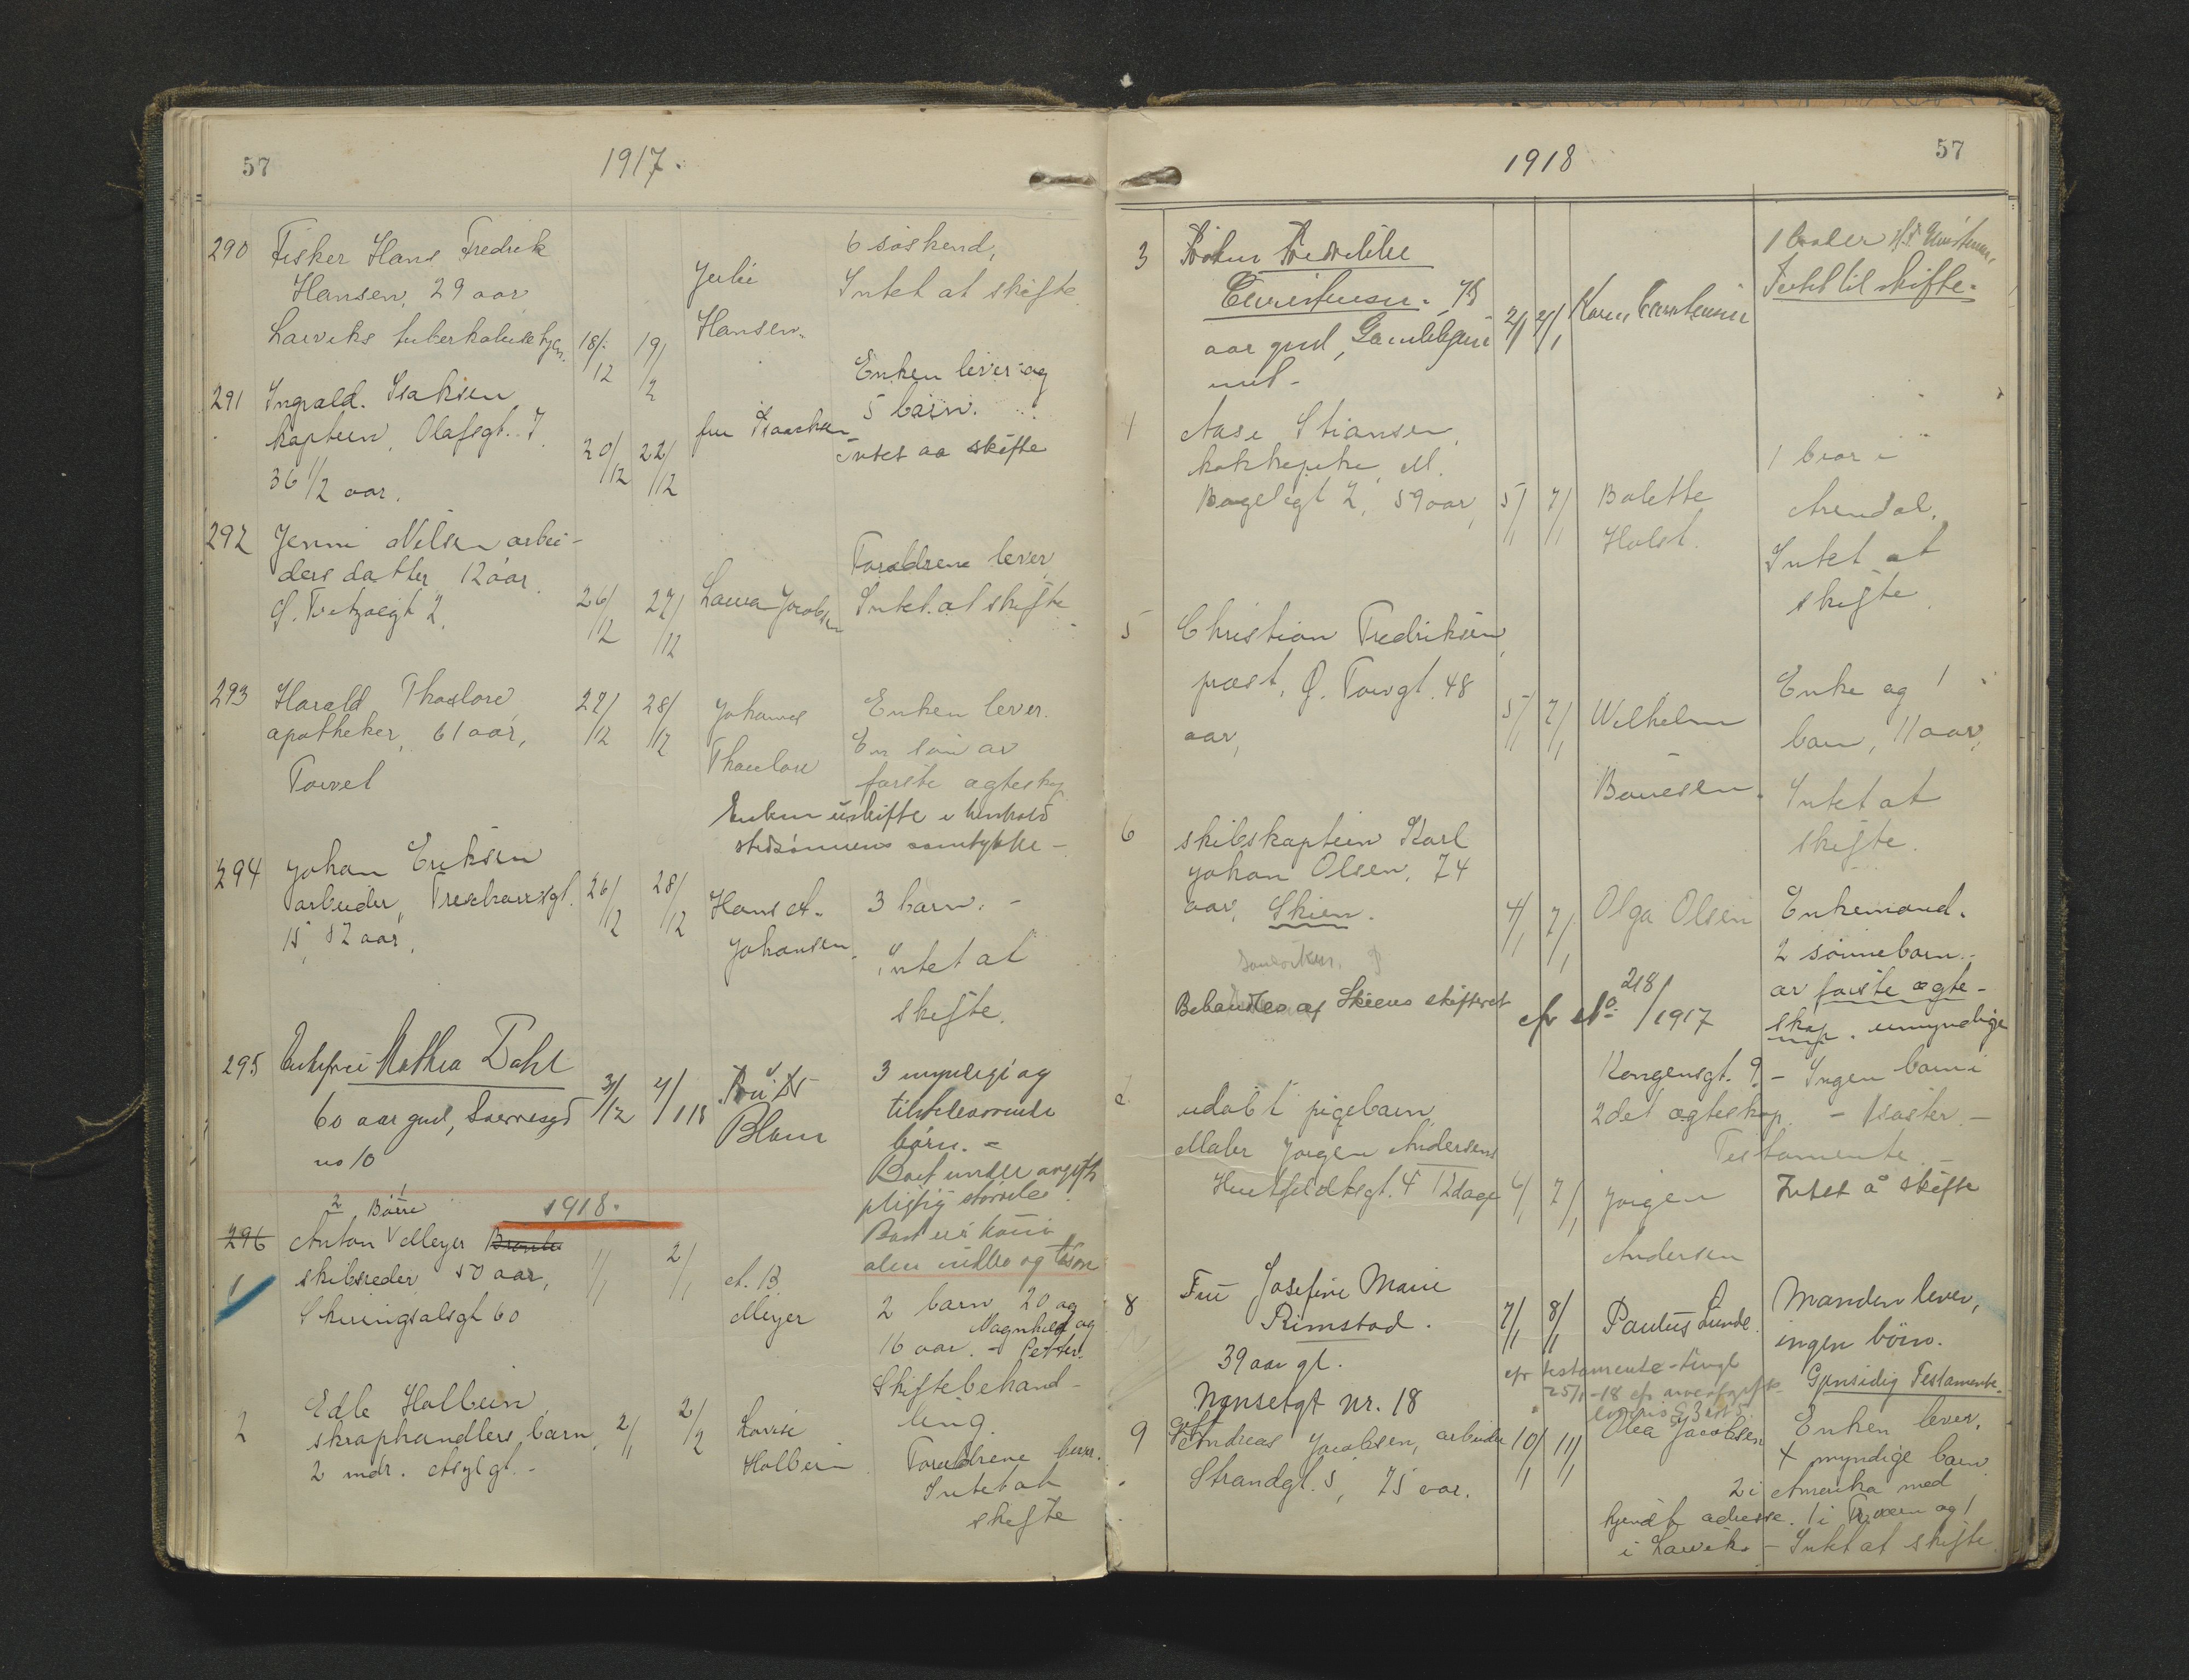 57
1917.
290 Fisker Hans Fredrik
Hansen, 29 aar
Larviks tuberkulosehjem. 18/12 19/12
Julie
Hansen.
6 søskend,
Intet at skifte
291 Ingvald. Isaksen
kaptein, Olafsgt. 7.
36 1/2 aar.
20/12 22/12
fru Isaachsen
Enken lever og
5 barn.
intet aa skifte
292 Jenni Nilsen arbei-
ders datter 12 aar.
Ø. 2,
26/12 27/12
Laura Jacobsen
Forældrene lever
Intet at skifte
293 Harald Thaulow
apotheker, 61 aar,
Torvet
27/12 28/12
Johannes
Thaulow
Enken lever.
En søn av
første ægteskap
Enken uskifte i henhold
stedsønnens samtykke -
294 Johan Eriksen
arbeider, Treschowsgt.
15, 82 aar,
26/12 28/12
Hans A.
Johansen.
3 barn. -
Intet at
skifte.
295 Enkefru Mathea Dahl
60 aar gml,
no 10
31/12 4/1 18
Blom
3 myndige og
tilstedeværende
børn. -
Boet under avgifts
pligtig størrelse.
1918.
2 Børre
296 Anton Meyer
1 skibsreder 50 aar,
Skiringsalsgt 60
1/1 2/1
A. B.
Meyer
2 barn 20 og
Magnhild og
16 aar. - Petter.
Skiftebehand-
ling.
2 Edle Holbein
skraphandlers barn,
2 mdr. Asylgt. -
2/1 2/2
Lovise
Holbein
Forældrene lever.
Intet at
skifte
1918
57
3
Christensen. 78
aar gml,
2/1 4/1
Karen
Intet til skifte.
4 Aase Stiansen,
kokkepike, M.
2, 59 aar,
5/1 7/1
Bolette
Holst.
1 bror i
Arendal.
Intet at
skifte.
5 Christian Fredriksen,
prest, Ø. Torvgt. 48
aar,
5/1 7/1
Wilhelm
Enke og 1
barn, 11 aar,
Intet at
skifte.
6 skibskaptein Karl
Johan Olsen, 74
aar, Skien.
4/1 7/1
Olga Olsen
Enkemand.
2 sønnebarn.-
av første ægte-
skap. umyndige
Behandles af Skiens skifteret
cfr No 218/1917
Kongensgt. 9. - Ingen barn i
2det ægteskap. -
Testamente. -
udøbt pigebarn,
Maler Jørgen Andersens
Huitfeldtsgt. 4 12 dage
6/1 7/1
Jørgen
Andersen
Intet å skifte
8 Fru Josefine Marie
Rimstad.
39 aar gl.
Nansetgt nr. 18
7/1 8/1
Paulus Lunde
Manden lever,
ingen børn.
cfr testamente - tingl
25/1 - 18 cfr arveafgifts-
Gjensidig Testamente.
9 Gift
Andreas Jacobsen, arbeider
Strandgt. 5, 75 aar.
10/1 11/1
Olea Jacobsen
Enken lever,
4 myndige barn
2 i Amerika med
kjendt adresse. 1 i og 1
i Larvik. - Intet at skifte.